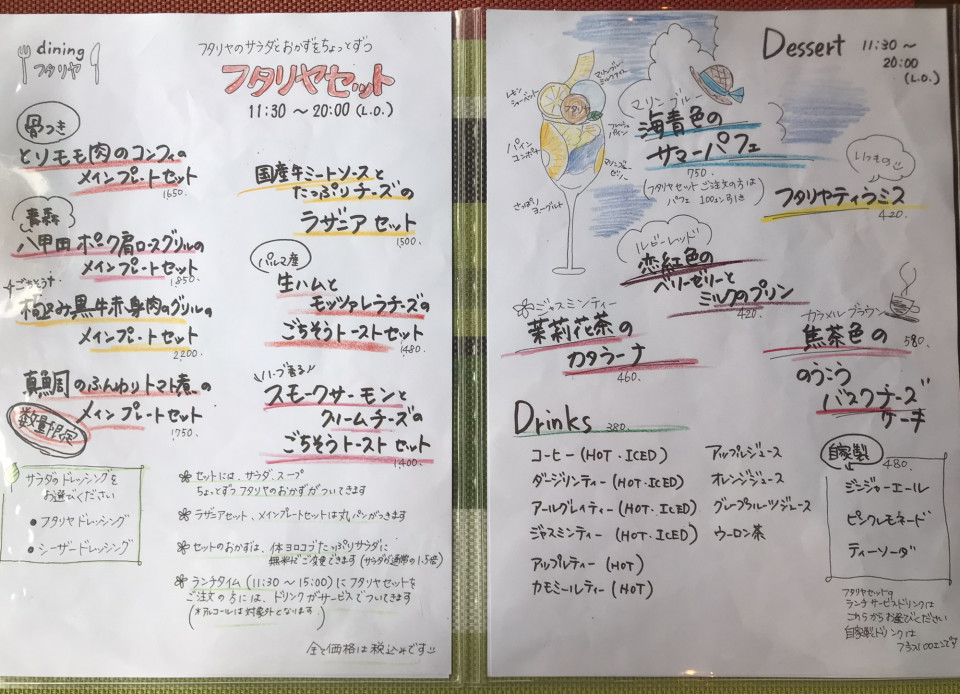 dining
フタリヤ
フタリヤのサラダとおかずをちょっとずつ
フタリヤセット
11:30 ～ 20:00 (L.O.)
骨つき
とりモモ肉のコンフィの
メインプレートセット
1650.
青森
八甲田ポーク肩ロースグリルの
メインプレートセット
1850.
ごちそう
極み黒牛赤身肉のグリルの
メインプレートセット
2,200.
真鯛のふんわりトマト煮の
メインプレートセット
1750.
数量限定
サラダのドレッシングを
お選びください
● フタリヤドレッシング
● シーザードレッシング
国産牛ミートソースと
たっぷりチーズの
ラザニアセット
1500.
パルマ産
生ハムと
モッツァレラチーズの
ごちそうトーストセット
1480.
ハーブ香る
スモークサーモンと
クリームチーズの
ごちそうトーストセット
1400.
セットには、サラダ、スープ
ちょっとずつフタリヤのおかずがついてきます
ラザニアセット、メインプレートセットは丸パンがつきます
セットのおかずは、体ヨロコブたっぷりサラダに
無料でご変更できます (サラダが通常の1.5倍)
ランチタイム (11:30 ～ 15:00) にフタリヤセットを
ご注文の方には、ドリンクがサービスでついてきます
(※アルコールは対象外となります)
全て価格は税込みです
Dessert 11:30 ～
20:00
(L.O.)
レモン
シャーベット
マリンブルー
ミルクアイス
フタリヤ
パイン
コンポート
フレッシュ
パイン
マリンブルー
ゼリー
さっぱり
ヨーグルト
マリンブルー
海青色の
サマーパフェ
750.
(フタリヤセットご注文の方は
パフェ 100エン引き)
いつもの
フタリヤティラミス
420.
ルビーレッド
恋紅色の
ベリーゼリーと
ミルクのプリン
420.
ジャスミンティー
茉莉花茶の
カタラーナ
460.
カラメルブラウン
焦茶色の 580.
のうこう
バスクチーズ
ケーキ
Drinks 380.
コーヒー (HOT・ICED)
ダージリンティー (HOT・ICED)
アールグレイティー (HOT・ICED)
ジャスミンティー (HOT・ICED)
アップルティー (HOT)
カモミールティー (HOT)
アップルジュース
オレンジジュース
グレープフルーツジュース
ウーロン茶
自家製
480.
ジンジャーエール
ピンクレモネード
ティーソーダ
フタリヤセットの
ランチサービスドリンクは
これらからお選びください
自家製ドリンクは
プラス100エンです